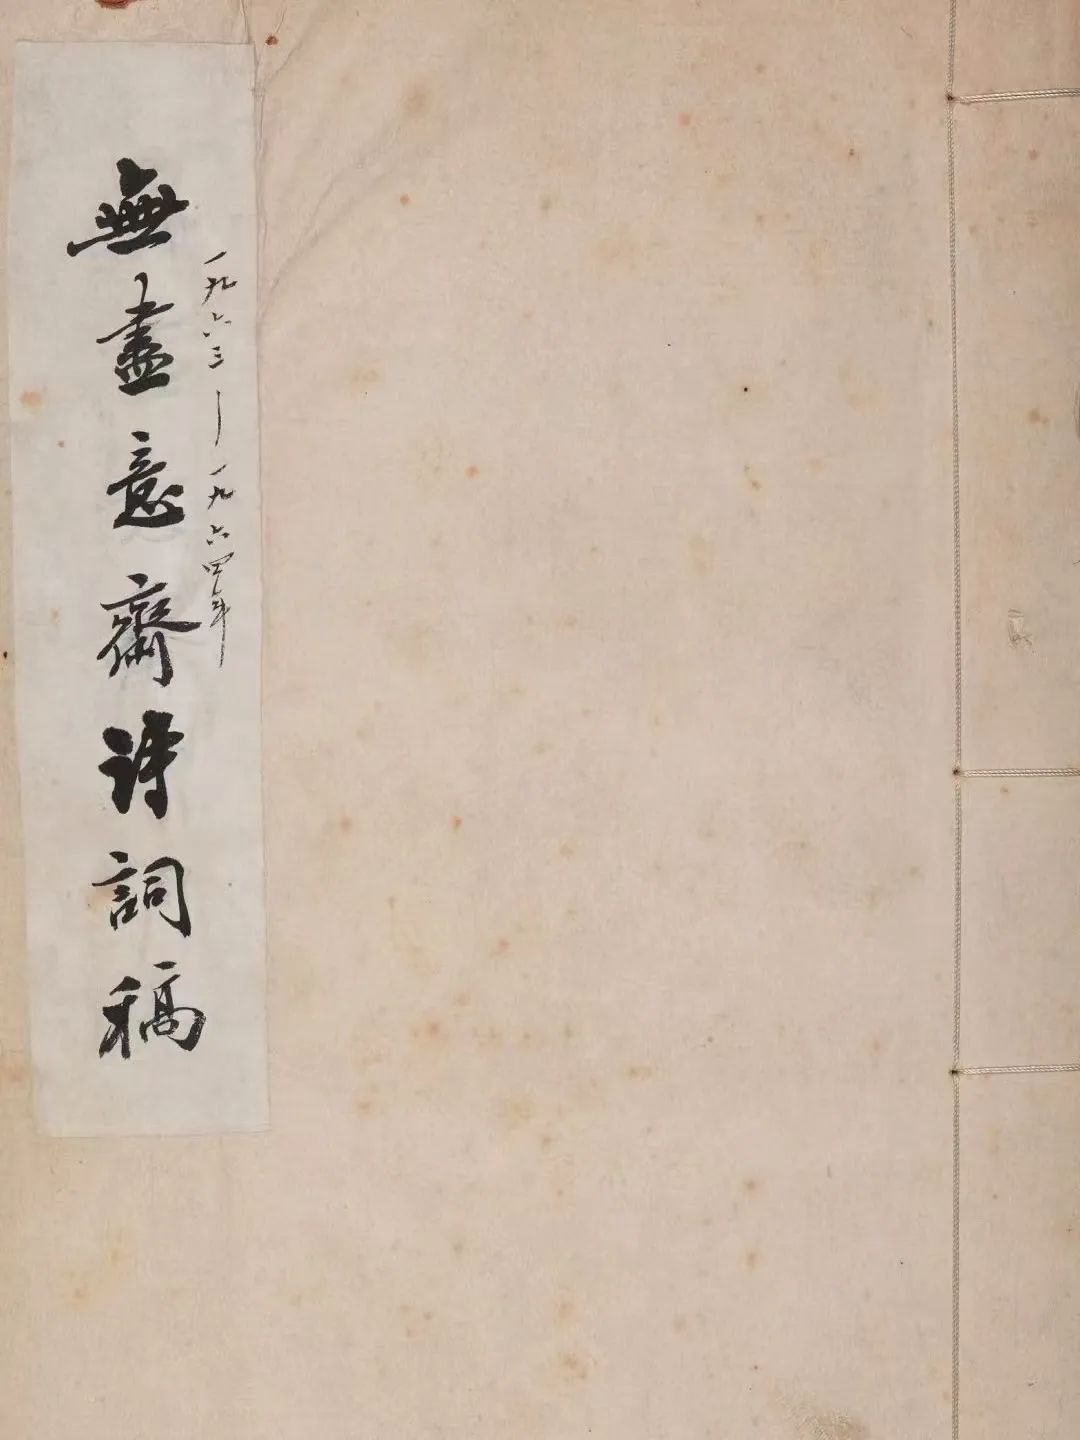 一九六三—一九六四年
無盡意齋詩詞稿